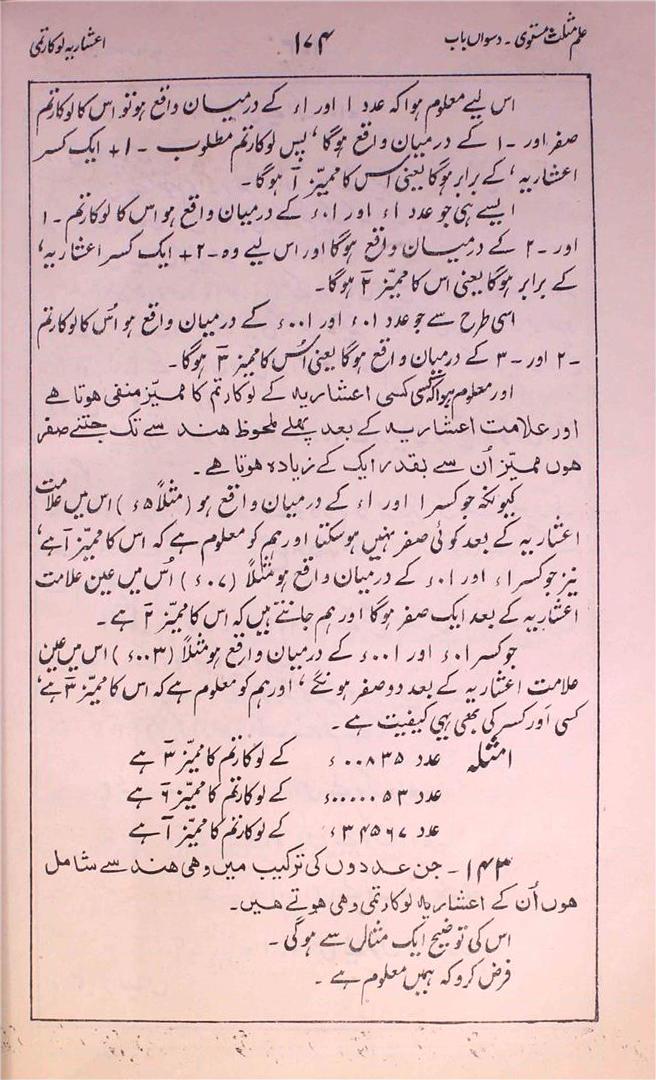 علم مثلث مستوی ۔ دسواں باب ۱۷۴ اعشاریہ لوکارتمی
اس لیے معلوم ہوا کہ عدد ۱ اور ۱ء کے درمیان واقع ہو تو اس کا لوکارتم
صفر اور ۔۱ کے درمیان واقع ہوگا، پس لوکارتم مطلوب ۔۱+ ایک کسر
اعشاریہ، کے برابر ہوگا یعنی اس کا ممیّز ۱̄ ہوگا۔
ایسے ہی جو عدد ۱ء اور ۰۱ء کے درمیان واقع ہو اس کا لوکارتم ۔۱
اور ۔۲ کے درمیان واقع ہوگا اور اس لیے وہ ۔۲+ ایک کسر اعشاریہ،
کے برابر ہوگا یعنی اس کا ممیّز ۲̄ ہوگا۔
اسی طرح سے جو عدد ۰۱ء اور ۰۰۱ء کے درمیان واقع ہو اُس کا لوکارتم
۔۲ اور ۔۳ کے درمیان واقع ہوگا یعنی اُس کا ممیز ۳̄ ہوگا۔
اور معلوم ہوا کہ کسی کسی اعشاریہ کے لوکارتم کا ممیّز منفی ہوتا ہے
اور علامت اعشاریہ کے بعد پہلے ملحوظ ہندسے تک جتنے صفر
ہوں ممیّز اُن سے بقدر ایک کے زیادہ ہوتا ہے۔
کیونکہ جو کسر ۱ اور ۱ء کے درمیان واقع ہو (مثلاً ۵ء) اس میں علامت
اعشاریہ کے بعد کوئی صفر نہیں ہوسکتا اور ہم کو معلوم ہے کہ اس کا ممیّز ۱̄ ہے،
نیز جو کسر ۱ء اور ۰۱ء کے درمیان واقع ہو مثلاً (۰۷ء) اُس میں عین علامت
اعشاریہ کے بعد ایک صفر ہوگا اور ہم جانتے ہیں کہ اس کا ممیّز ۲̄ ہے۔
جو کسر ۰۱ء اور ۰۰۱ء کے درمیان واقع ہو مثلاً (۰۰۳ء) اس میں عین
علامت اعشاریہ کے بعد دو صفر ہونگے، اور ہم کو معلوم ہے کہ اس کا ممیّز ۳̄ ہے،
کسی اَور کسر کی بھی یہی کیفیت ہے۔
امثلہ عدد ۰۰۸۳۵ء کے لوکارتم کا ممیّز ۳̄ ہے
عدد ۰۰۰۰۰۵۳ء کے لوکارتم کا ممیّز ۶̄ ہے
عدد ۳۴۵۶۷ء کے لوکارتم کا ممیّز ۱̄ ہے
۱۴۳۔ جن عددوں کی ترکیب میں وہی ہندسے شامل
ہوں اُن کے اعشاریہ لوکارتمی وہی ہوتے ہیں۔
اس کی توضیح ایک مثال سے ہوگی۔
فرض کرو کہ ہمیں معلوم ہے ۔